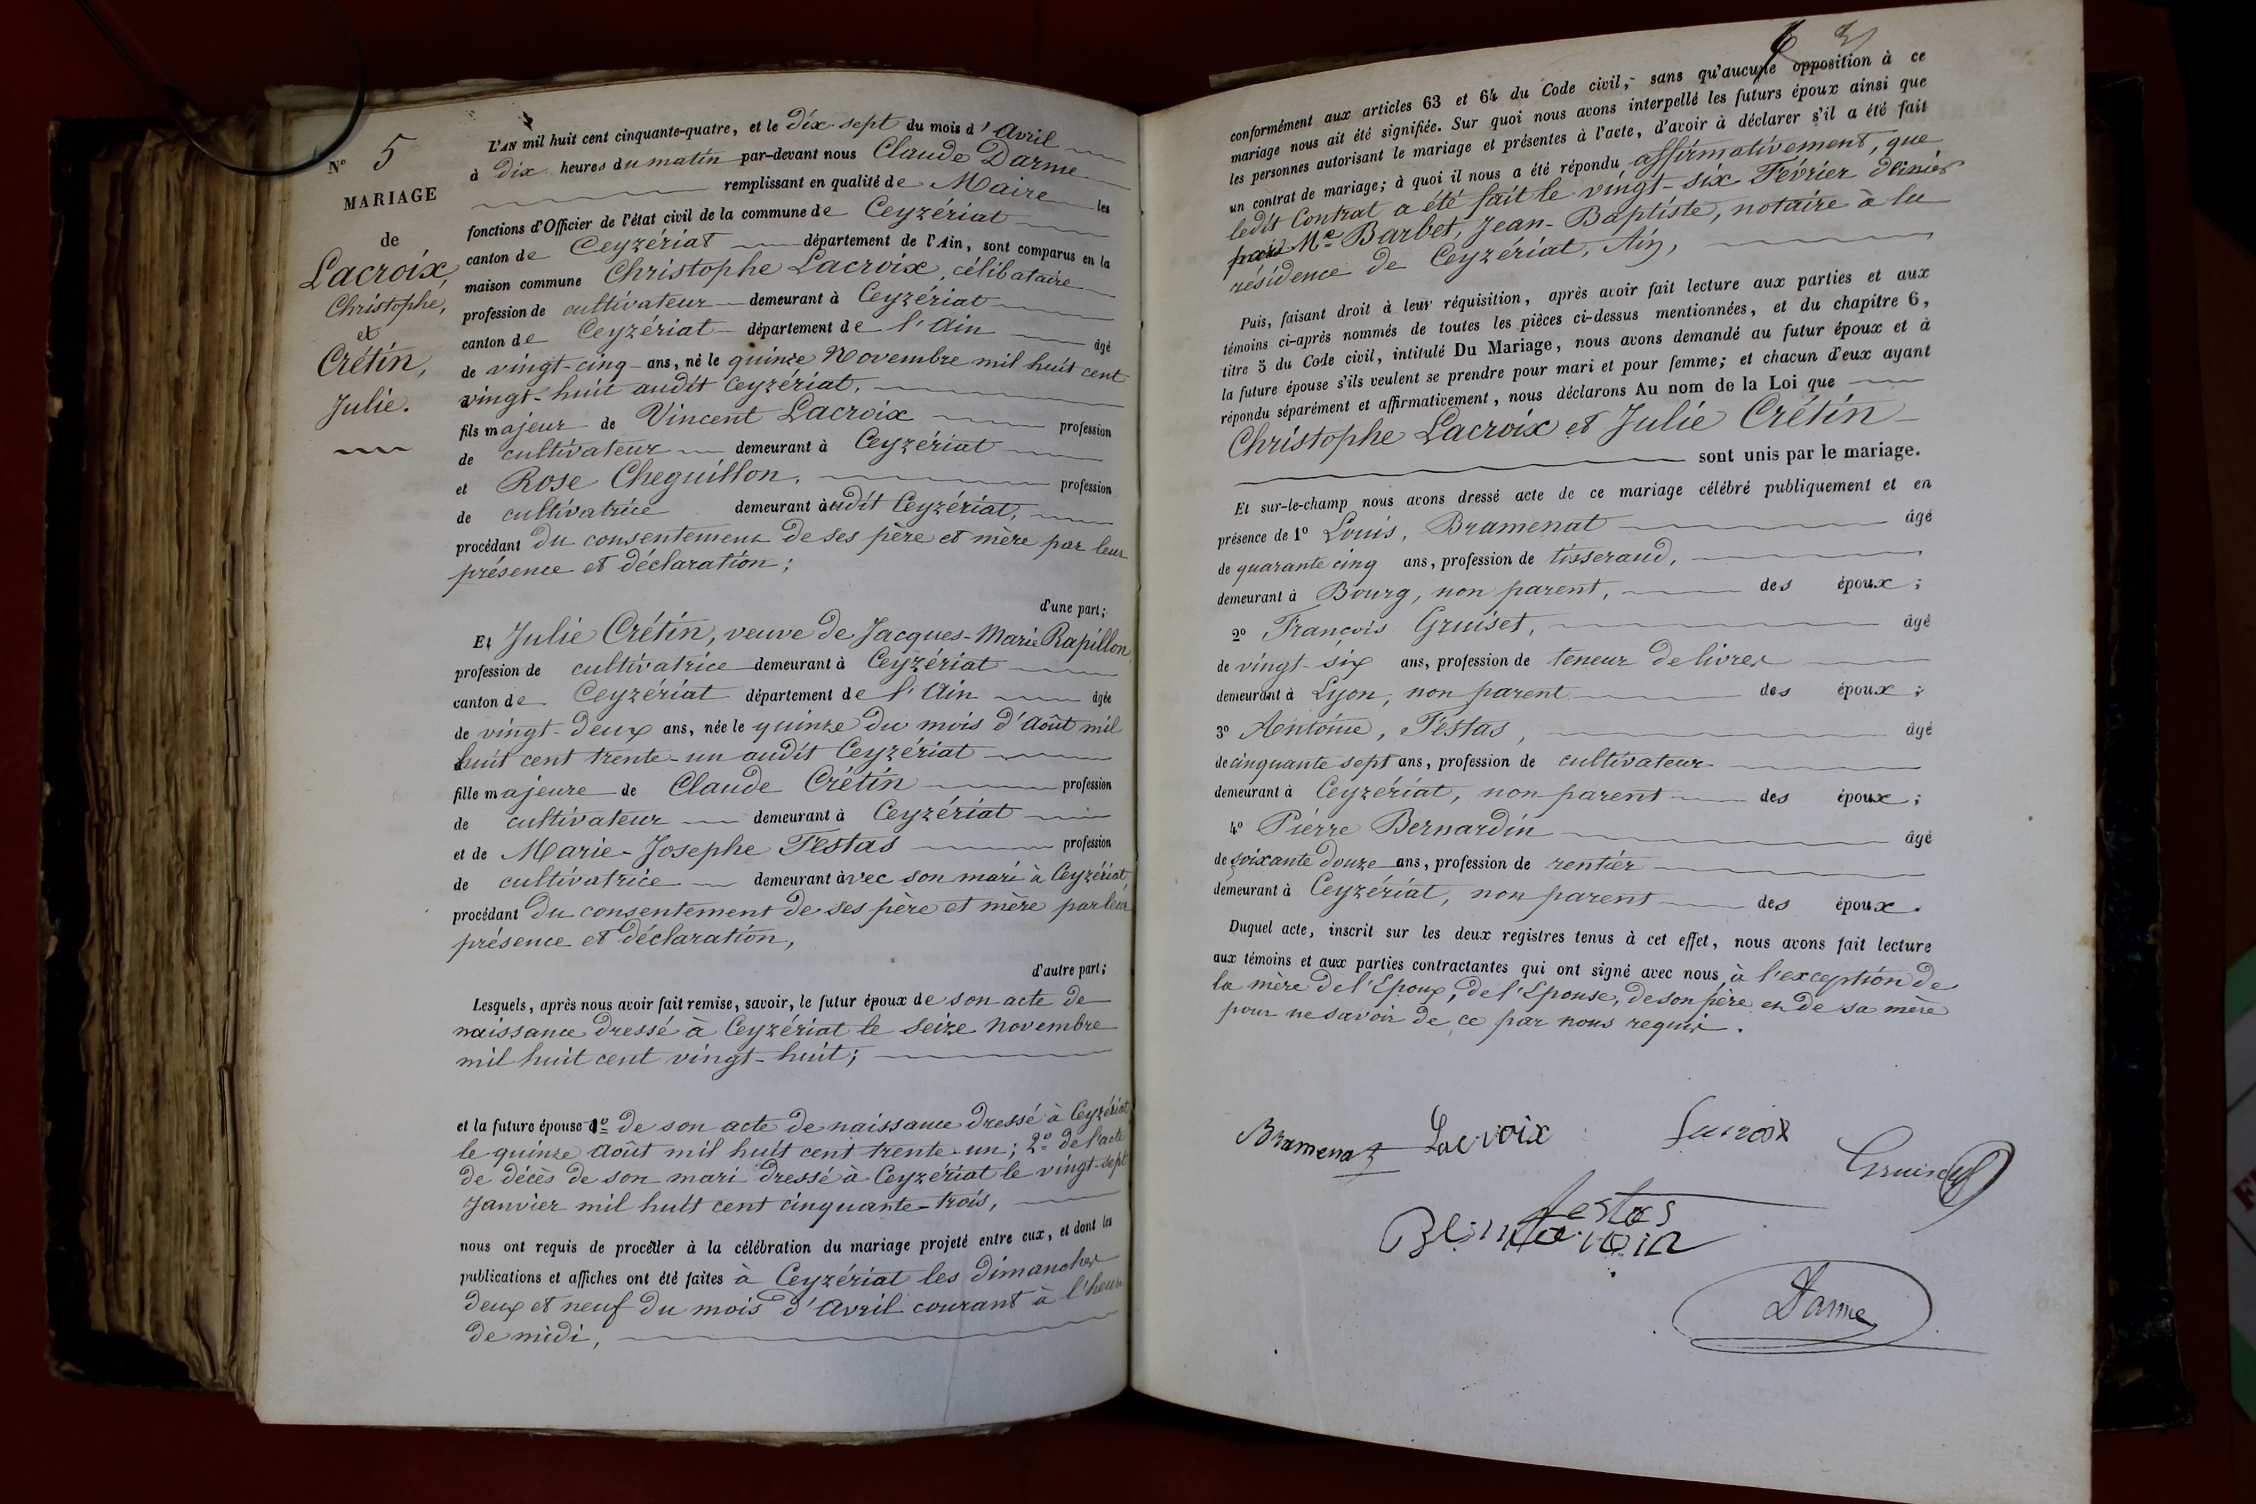 N° 5
MARIAGE
de
Lacroix,
Christophe,
et
Crétin,
Julie.
L'AN mil huit cent cinquante-quatre, et le dix-sept du mois d'Avril
à dix heures du matin par-devant nous Claude Darme
remplissant en qualité de Maire les
fonctions d'Officier de l'état civil de la commune de Ceyzériat
canton de Ceyzériat département de l'Ain, sont comparus en la
maison commune Christophe Lacroix, célibataire
profession de cultivateur demeurant à Ceyzériat
canton de Ceyzériat département de l'Ain âgé
de vingt-cinq ans, né le quinze Novembre mil huit cent
vingt-huit audit Ceyzériat,
fils majeur de Vincent Lacroix profession
de cultivateur demeurant à Ceyzériat
et Rose Cheguillon, profession
de cultivatrice demeurant audit Ceyzériat,
procédant du consentement de ses père et mère par leur
présence et déclaration;
d'une part;
Et Julie Crétin, veuve de Jacques-Marie Rapillon,
profession de cultivatrice demeurant à Ceyzériat
canton de Ceyzériat département de l'Ain âgée
de vingt-deux ans, née le quinze du mois d'Août mil
huit cent trente-un audit Ceyzériat
fille majeure de Claude Crétin profession
de cultivateur demeurant à Ceyzériat
et de Marie-Josephe Festas profession
de cultivatrice demeurant avec son mari à Ceyzériat,
procédant du consentement de ses père et mère par leur
présence et déclaration,
d'autre part;
Lesquels, après nous avoir fait remise, savoir, le futur époux de son acte de
naissance dressé à Ceyzériat le seize Novembre
mil huit cent vingt-huit;
et la future épouse 1° de son acte de naissance dressé à Ceyzériat
le quinze Août mil huit cent trente-un; 2° de l'acte
de décès de son mari dressé à Ceyzériat le vingt-sept
Janvier mil huit cent cinquante-trois,
nous ont requis de procéder à la célébration du mariage projeté entre eux, et dont les
publications et affiches ont été faites à Ceyzériat les dimanches
deux et neuf du mois d'Avril courant à l'heure
de midi,
conformément aux articles 63 et 64 du Code civil, sans qu'aucune opposition à ce
mariage nous ait été signifiée. Sur quoi nous avons interpellé les futurs époux ainsi que
les personnes autorisant le mariage et présentes à l'acte, d'avoir à déclarer s'il a été fait
un contrat de mariage; à quoi il nous a été répondu affirmativement, que
ledit Contrat a été fait le vingt-six Février dernier
Me Barbet, Jean-Baptiste, notaire à la
résidence de Ceyzériat, Ain,
Puis, faisant droit à leur réquisition, après avoir fait lecture aux parties et aux
témoins ci-après nommés de toutes les pièces ci-dessus mentionnées, et du chapitre 6,
titre 5 du Code civil, intitulé Du Mariage, nous avons demandé au futur époux et à
la future épouse s'ils veulent se prendre pour mari et pour femme; et chacun d'eux ayant
répondu séparément et affirmativement, nous déclarons Au nom de la Loi que
Christophe Lacroix et Julie Crétin
sont unis par le mariage.
Et sur-le-champ nous avons dressé acte de ce mariage célébré publiquement et en
présence de 1° Louis, Bramenat âgé
de quarante cinq ans, profession de tisserand,
demeurant à Bourg, non parent, des époux;
2° François Gruiset, âgé
de vingt-six ans, profession de teneur de livres
demeurant à Lyon, non parent des époux;
3° Antoine, Festas, âgé
de cinquante sept ans, profession de cultivateur
demeurant à Ceyzériat, non parent des époux;
4° Pierre Bernardin âgé
de soixante douze ans, profession de rentier
demeurant à Ceyzériat, non parent des époux.
Duquel acte, inscrit sur les deux registres tenus à cet effet, nous avons fait lecture
aux témoins et aux parties contractantes qui ont signé avec nous à l'exception de
la mère de l'Epoux, de l'Epouse, de son père et de sa mère
pour ne savoir de ce par nous requis.
Bramenat Lacroix Lacroix
Gruiset
festas
Darme